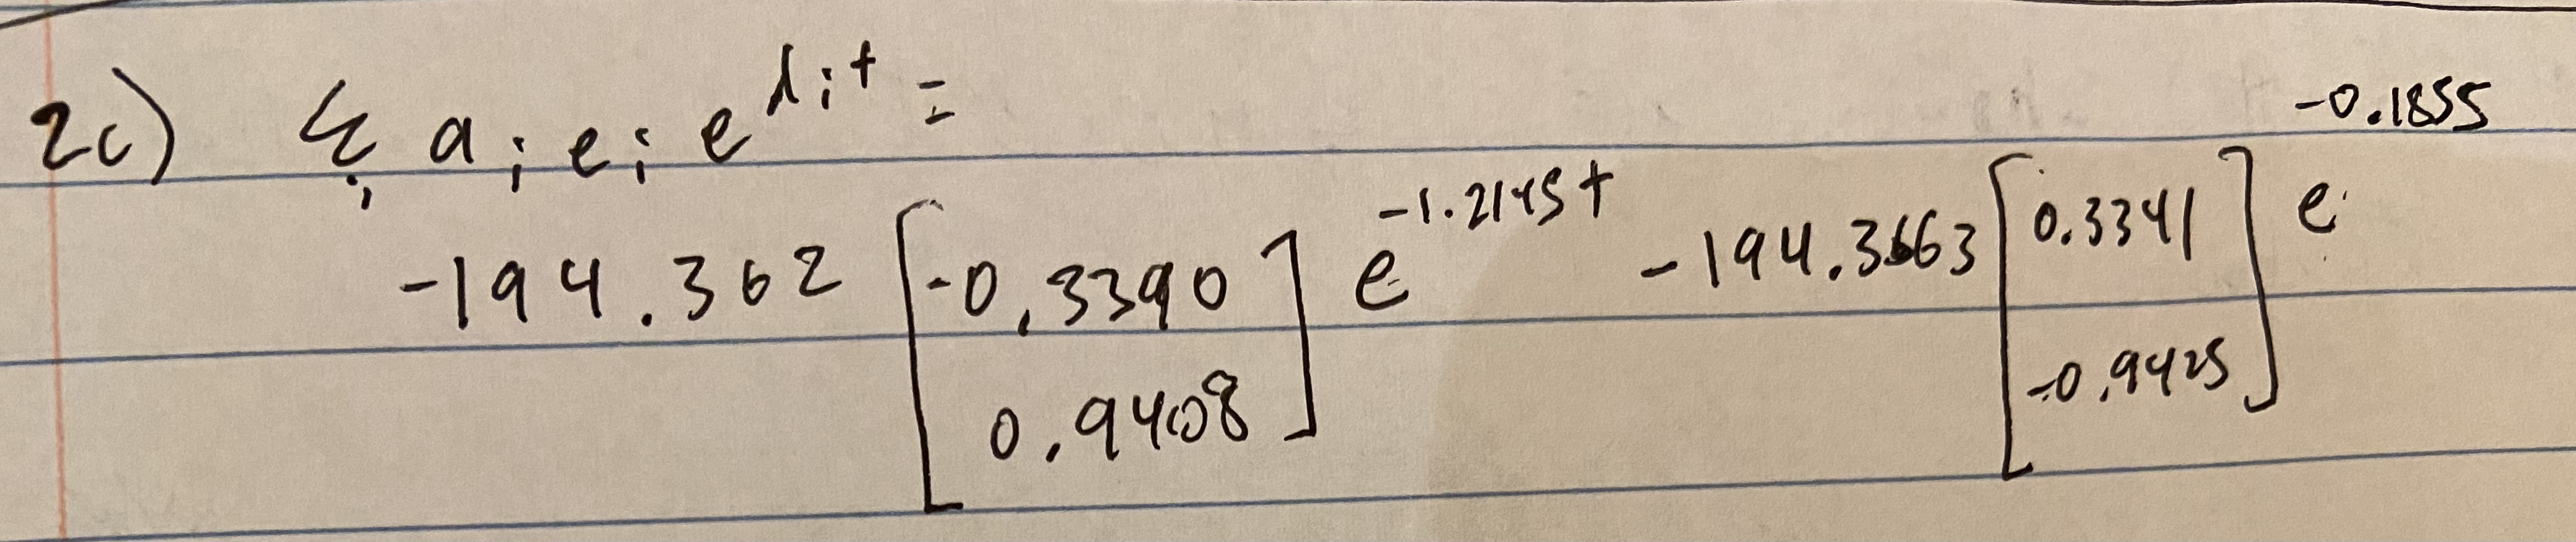 2c) Σ_i a_i e_i e^{λ_i t} =
-194.362 [-0.3390 0.9408] e^{-1.2145t} -194.3663 [0.3341 -0.9425] e^{-0.1855}